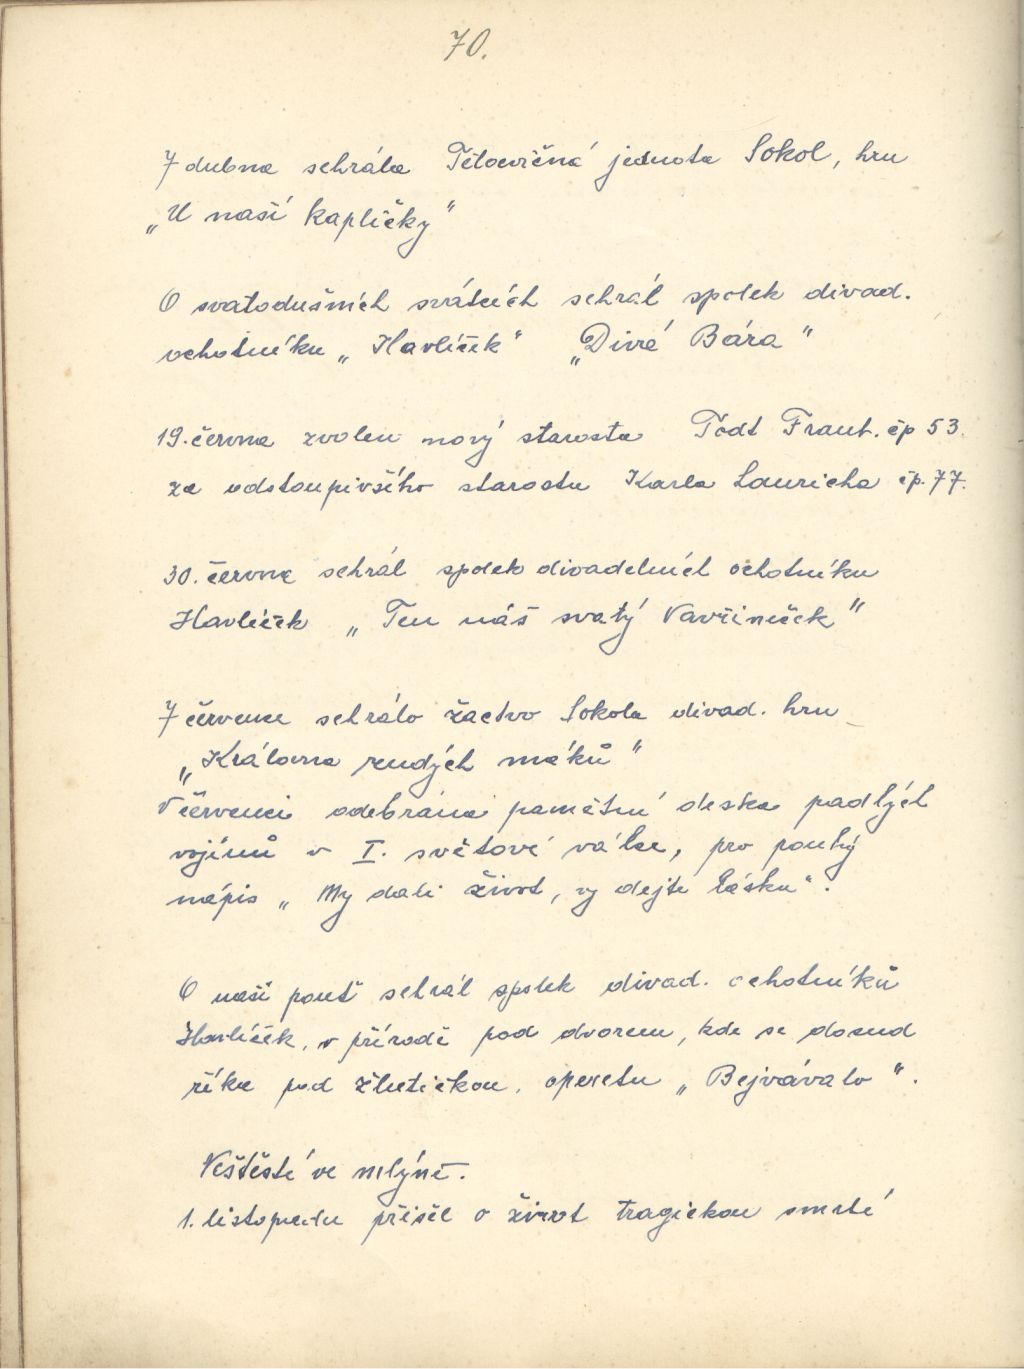 70.
7 dubna sehrála Tělocvičná jednota Sokol, hru
„U naší kapličky"
O svatodušních svátcích sehrál spolek divad.
ochotníku „Havlíček" „Divá Bára"
19. června zvolen nový starosta Tódt Frant. čp 53.
za odstoupivšího starostu Karla Lauricha čp. 77.
30. června sehrál spolek divadelních ochotníku
Havlíček „Ten náš svatý Vavřineček"
7 července sehrálo žactvo Sokola divad. hru
„Královna rudých máků"
V červenci odebrána pamětní deska padlých
vojínů v I. světové válce, pro pouhý
nápis „My dali život, vy dejte lásku".
O naší pouti sehrál spolek divad. ochotníků
Havlíček, v přírodě pod dvorem, kde se dosud
říká pod žlutičkou, operetu „Bejvávalo".
Neštěstí ve mlýně.
1. listopadu přišel o život tragickou smrtí